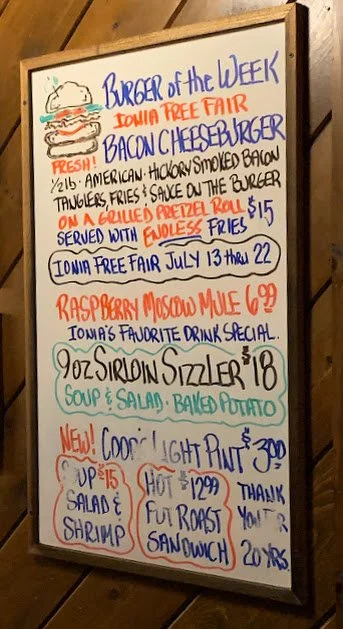 BURGER OF THE WEEK
IONIA FREE FAIR
BACON CHEESEBURGER
FRESH!
1/2 lb · AMERICAN · HICKORY SMOKED BACON
TANGLERS, FRIES & SAUCE ON THE BURGER
ON A GRILLED PRETZEL ROLL $15
SERVED WITH ENDLESS FRIES
IONIA FREE FAIR JULY 13 thru 22
RASPBERRY MOSCOW MULE 6.99
IONIA'S FAVORITE DRINK SPECIAL.
9oz SIRLOIN SIZZLER $18
SOUP & SALAD · BAKED POTATO
NEW! PINT $3.00
$15
SALAD &
SHRIMP
HOT $12.99
ROAST
SANDWICH
THANK
20 YRS